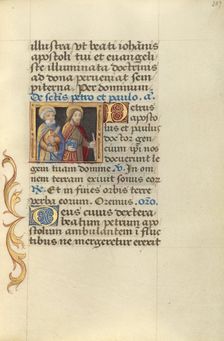 illustra vt beati iohānis
apostoli tui et euangeli
ste illuminata doctrinis
ad dona perueniat sem
piterna. Per dominum.
De sctis petro et paulo. a.
Petrus
aposto
lus et paulus
doctor gen
cium ipi nos
docuerunt le
gem tuam domine. V. In om
nem terram exiuit sonus eor
Re. Et in fines orbis terre
verba eorum. Oremus. oro.
Deus cuius dextera
beatum petrum apo
stolum ambulantem ī fluc
tibus ne mergeretur erexit